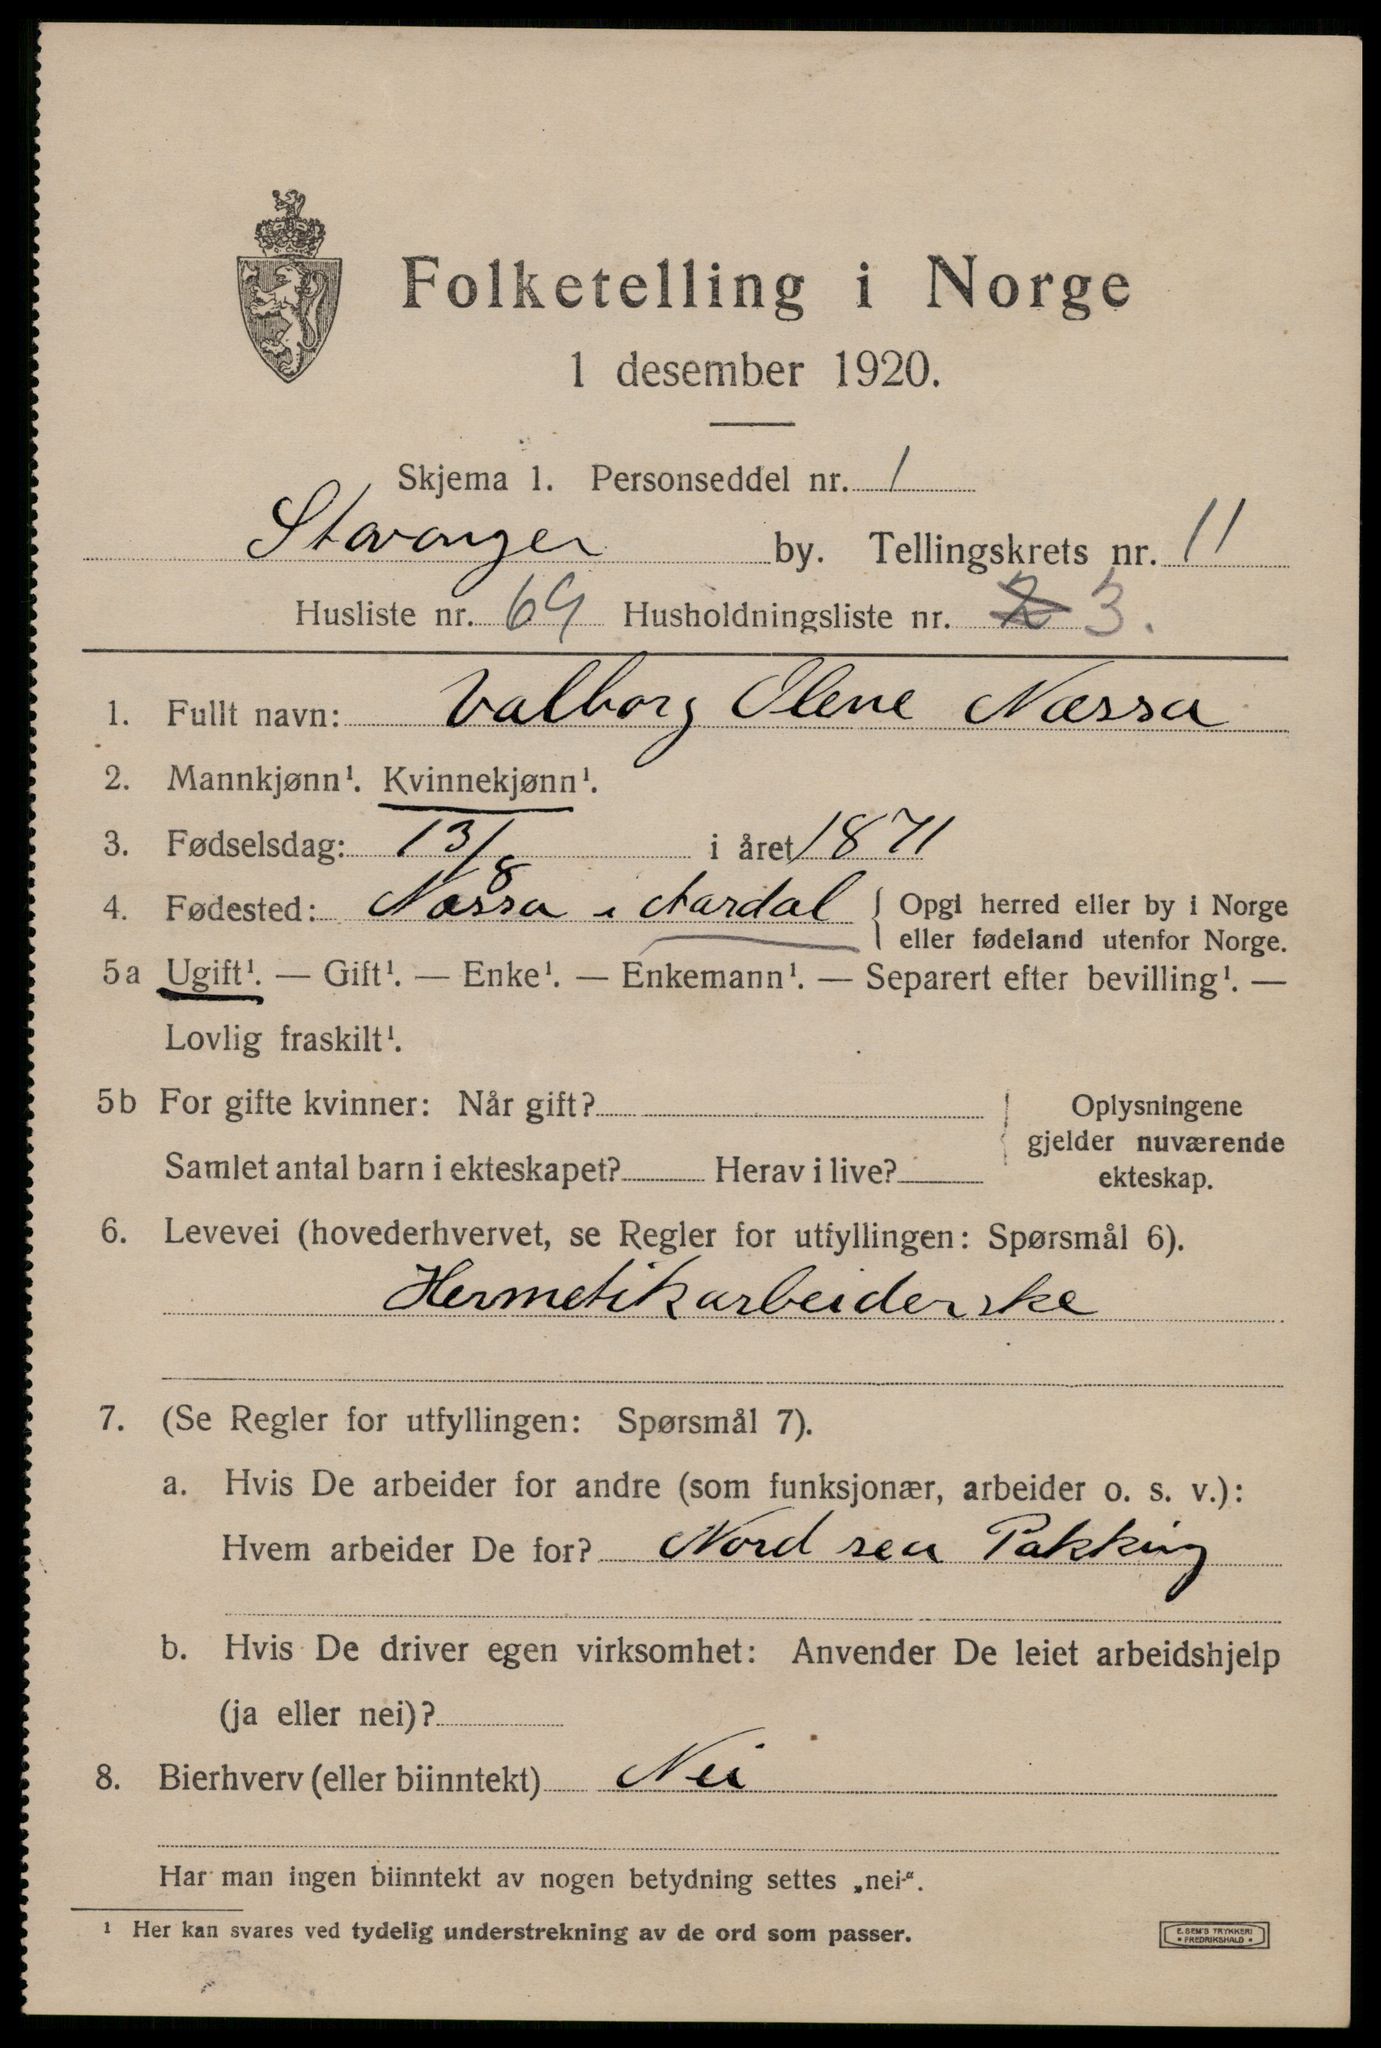 Folketelling i Norge
1 desember 1920.
Skjema 1. Personseddel nr. 1
Stavanger by. Tellingskrets nr. 11
Husliste nr. 69 Husholdningsliste nr. 2 3.
1. Fullt navn: Valborg Olene Næssa
2. Mannkjønn¹. Kvinnekjønn¹.
3. Fødselsdag: 13/8 i året 1871
4. Fødested: Næssa i Aardal { Opgi herred eller by i Norge
eller fødeland utenfor Norge.
5a Ugift¹. — Gift¹. — Enke¹. — Enkemann¹. — Separert efter bevilling¹. —
Lovlig fraskilt¹.
5b For gifte kvinner: Når gift?
Samlet antal barn i ekteskapet? Herav i live?
Oplysningene
gjelder nuværende
ekteskap.
6. Levevei (hovederhvervet, se Regler for utfyllingen: Spørsmål 6).
Hermetikarbeiderske
7. (Se Regler for utfyllingen: Spørsmål 7).
a. Hvis De arbeider for andre (som funksjonær, arbeider o. s. v.):
Hvem arbeider De for? Nord sea Pakking
b. Hvis De driver egen virksomhet: Anvender De leiet arbeidshjelp
(ja eller nei)?
8. Bierhverv (eller biinntekt) Nei
Har man ingen biinntekt av nogen betydning settes „nei“.
¹ Her kan svares ved tydelig understrekning av de ord som passer.
E. SEM'S TRYKKERI
• FREDRIKSHALD •